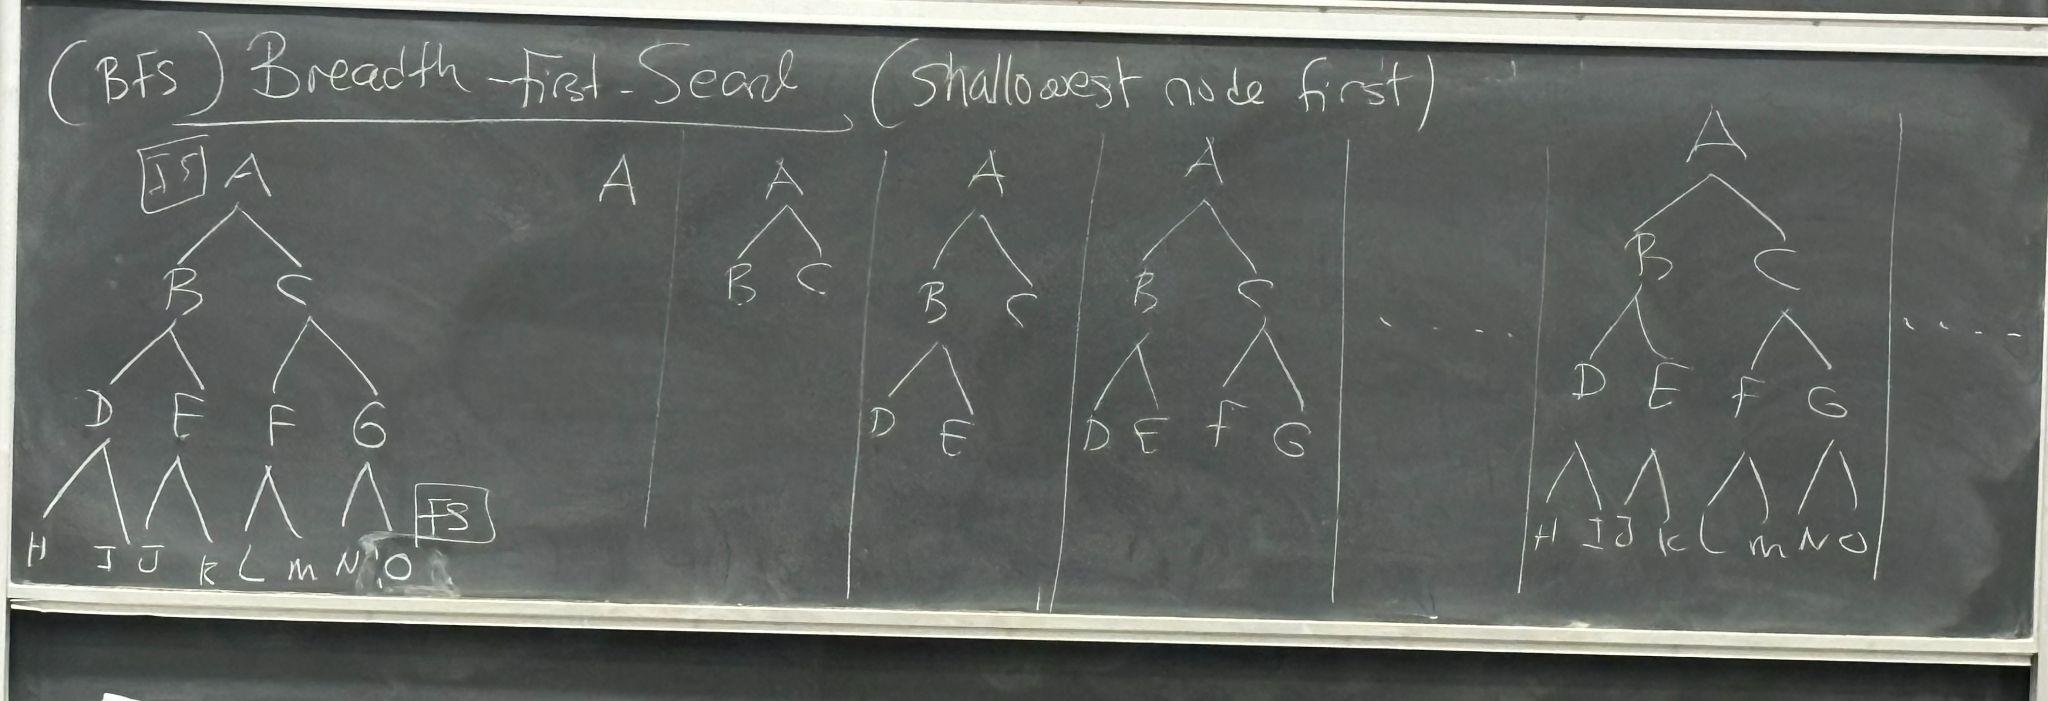 (BFS) Breadth-First-Search (Shallowest node first)
IS A
B C
D E F G
FS
H I J K L M N O
A
A
B C
A
B C
D E
A
B C
D E F G
. . . . .
A
B C
D E F G
H I J K L M N O
. . . . .